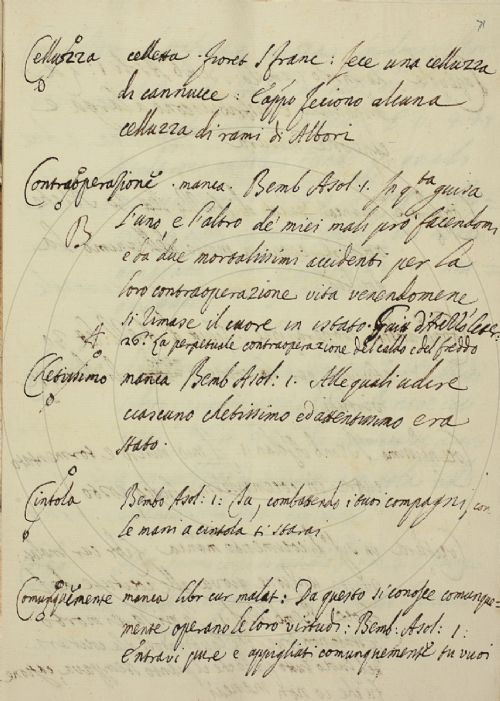 71
Celluzza celletta . fioret S franc : fece una celluzza
di cannucce : Cappo feciono alcuna
celluzza di rami di Albori
Contraoperazione . manca . Bemb Asol . 1 . In q.ta guisa
B l'uno, e l'altro de' miei mali prò facendomi
e da due mortalissimi accidenti per la
loro contraoperazione vita venendomene
si rimase il cuore in istato .
26. la perpetuale contraoperazione del caldo e del freddo
Chetissimo manca Bemb Asol : 1 . Alle quali udire
ciascuno chetissimo ed attentissimo era
stato .
Cintola Bembo Asol : 1 : Tu, combattendo i tuoi compagni, con
le mani a cintola ti starai
Comunquemente manca libr cur malat : Da questo si conosce comunque-
mente operano le loro virtudi : Bemb : Asol : 1 :
Entravi pure e appigliati comunquemente tu vuoi